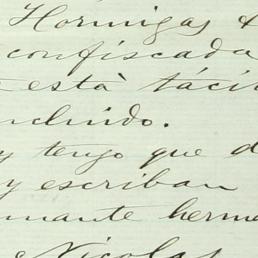 Hormigas &
confiscada
está táci
ncluido.
y tengo que d
y escriban
mante herma
Nicolas